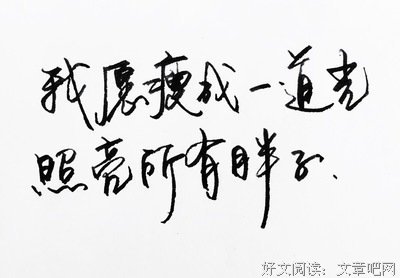 我愿瘦成一道光
照亮所有胖子.
好文阅读：文章吧网